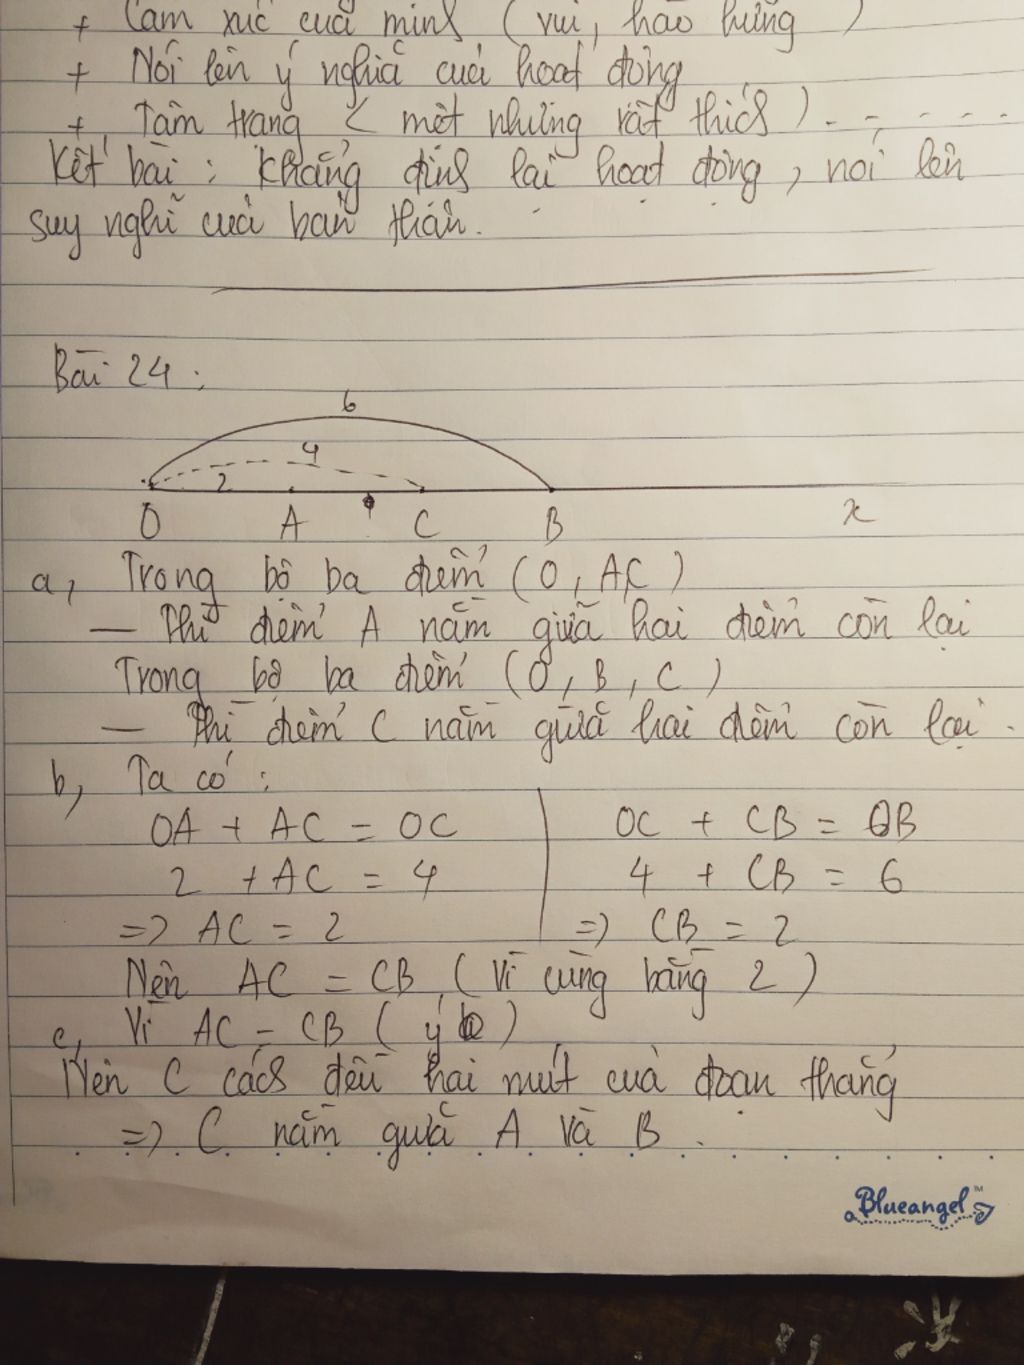 + Cảm xúc cuả mình ( vui, hào hứng )
+ Nói lên ý nghiã cuả hoạt động
+ Tâm trạng ( mệt nhưng rất thích ) . - - - - . .
Kết bài : Khẳng định lại hoạt động , nói lên
suy nghĩ cuả bản thân.
Bài 24 :
6
4
2
O A C B x
a, Trong bộ ba điểm ( O , A,C )
— Thì điểm A nằm giưã hai điểm còn lại
Trong bộ ba điểm ( O , B , C )
— Thì điểm C nằm giưã hai điểm còn lại .
b, Ta có :
OA + AC = OC OC + CB = OB
2 + AC = 4 4 + CB = 6
=> AC = 2 => CB = 2
Nên AC = CB ( Vì cùng bằng 2 )
c, Vì AC = CB ( ý b )
Nên C cách đều hai mút cuả đoạn thẳng
=> C nằm giưã A và B .
Blueangel™